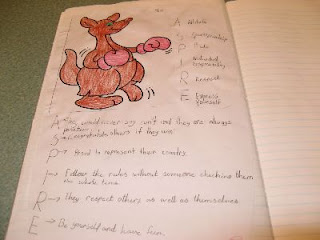 A
S Sportsmanship
P Pride
I Individual
responsibility
R Respect
E Express
yourself
A → would never say can't and they are always
positive.
S → congratulate others if they win.
P → Proud to represent their country.
I → Follow the rules without someone checking them
the whole time.
R → They respect others as well as themselves.
E → Be yourself and have fun.